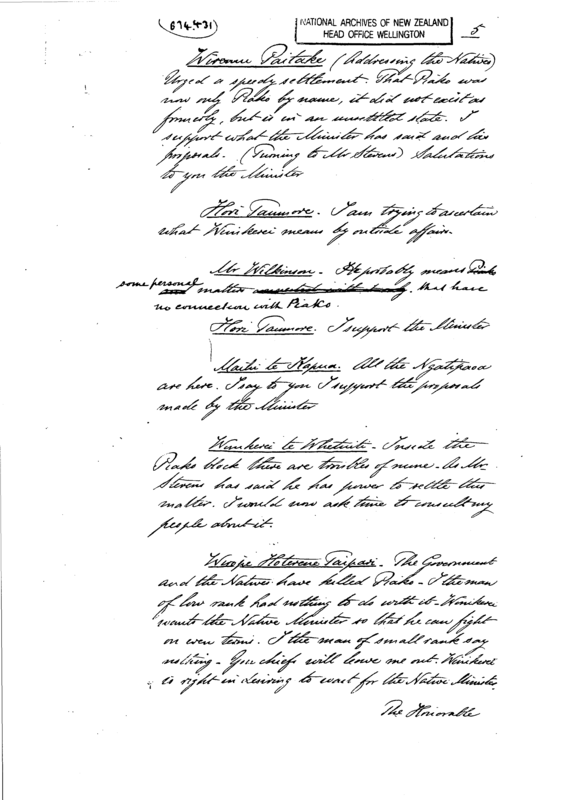 (674.+31)
NATIONAL ARCHIVES OF NEW ZEALAND
HEAD OFFICE WELLINGTON
5
Wiremu Paitake (Addressing the Natives)
Urged a speedy settlement. That Piako was
now only Piako by name, it did not exist as
formerly, but is in an unsettled state. I
support what the Minister has said and his
proposals. (Turning to Mr Stevens) Salutations
to you the Minister
Hori Taumore. I am trying to ascertain
what Winikerei means by outside affairs.
Mr Wilkinson - He probably means
some personal matter that have
no connection with Piako.
Hori Taumore. I support the Minister
te Kapua. All the Ngatipaoa
are here. I say to you I support the proposals
made by the Minister
Winikerei te Whetuiti - Inside the
Piako block there are troubles of mine. As Mr.
Stevens has said he has power to settle this
matter. I would now ask time to consult my
people about it.
Wirope Hoterene Taipari - The Government
and the Natives have killed Piako - I the man
of low rank had nothing to do with it - Winikerei
wants the Native Minister so that he can fight
on even terms. I the man of small rank say
nothing - You chiefs will leave me out. Winikerei
is right in desiring to wait for the Native Minister.
The Honorable